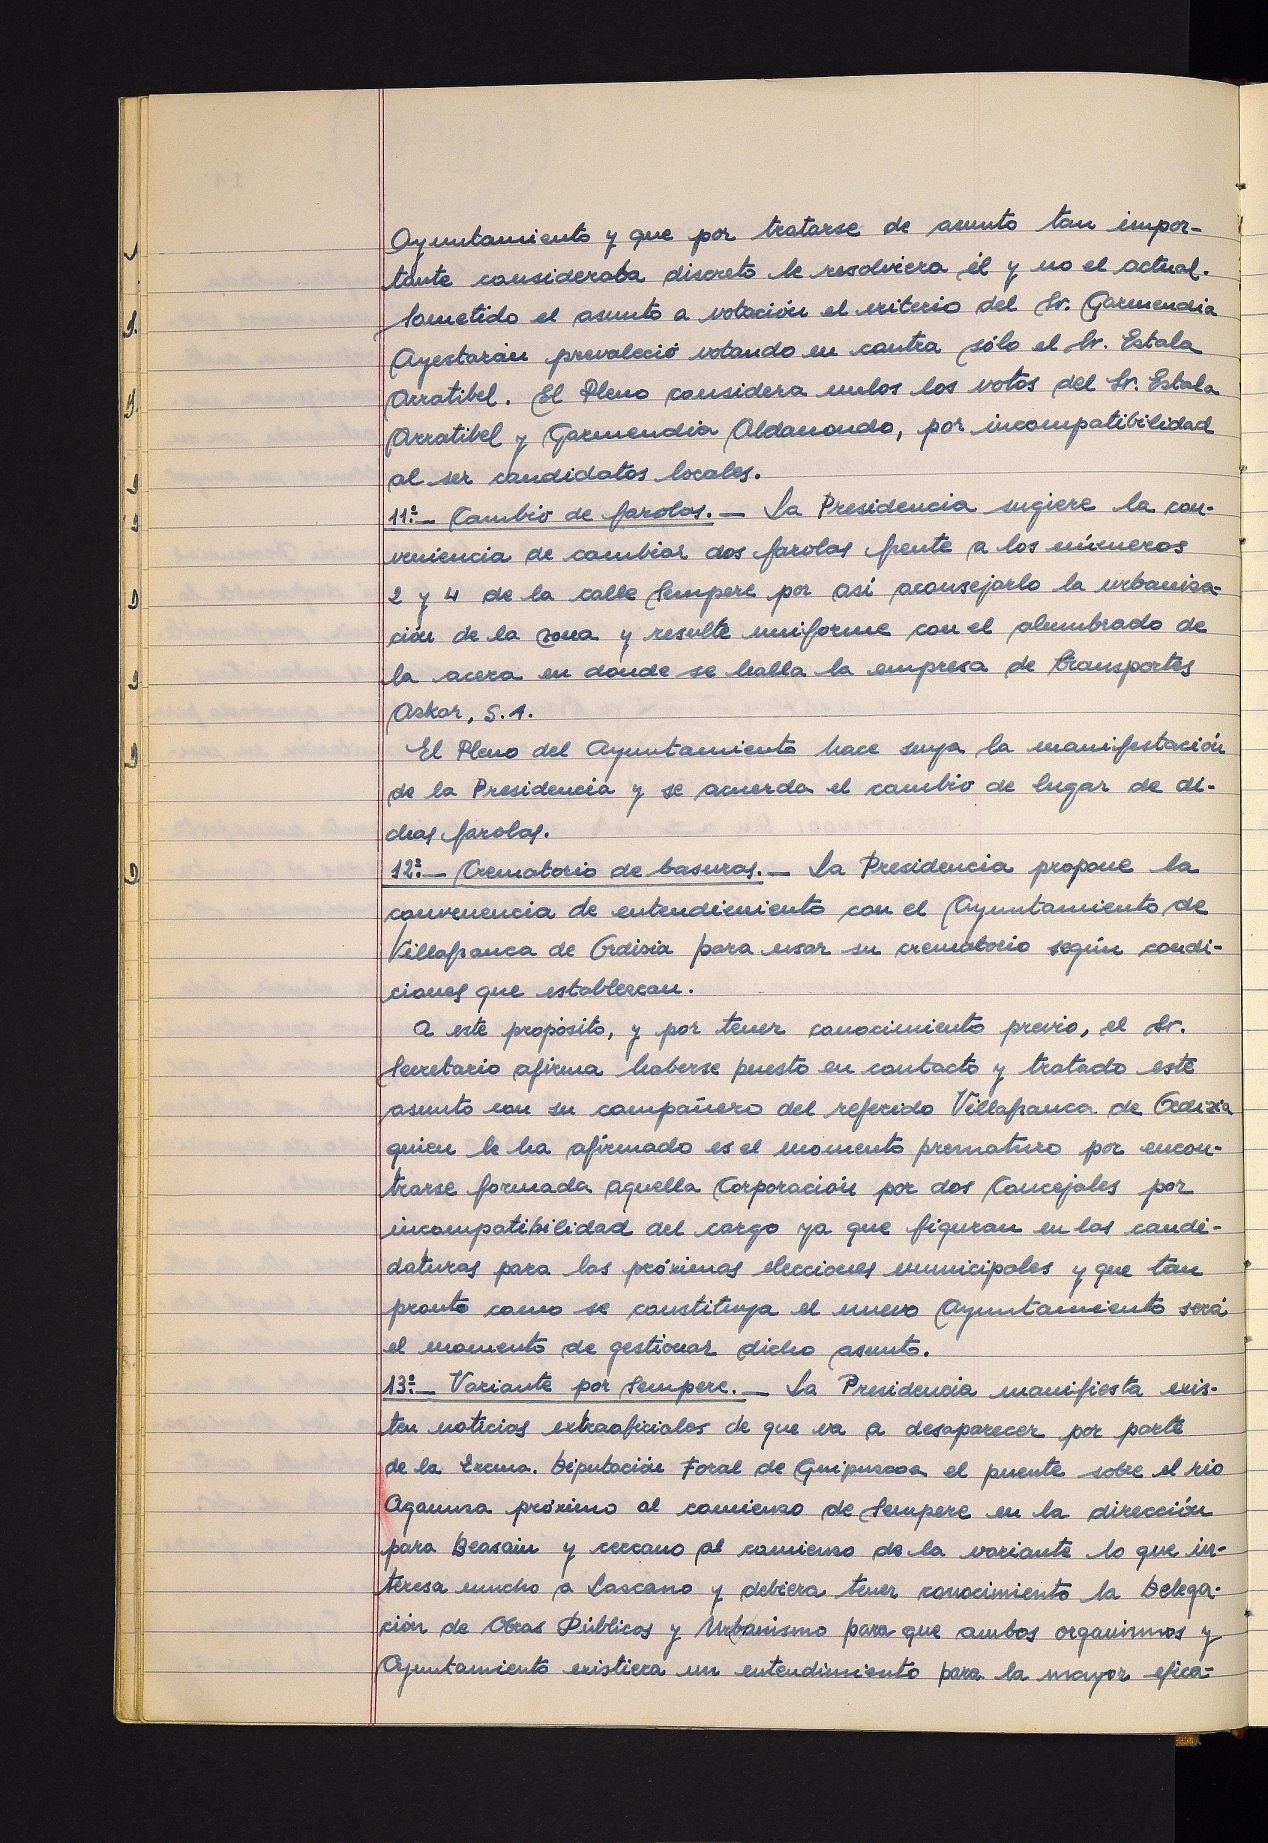 Ayuntamiento y que por tratarse de asunto tan impor-
tante consideraba discreto le resolviera él y no el actual.
Sometido el asunto a votación el criterio del Sr. Garmendia
Ayestarán prevaleció votando en contra sólo el Sr. Estala
Arratibel. El Pleno considera nulos los votos del Sr. Estala
Arratibel y Garmendia Aldanondo, por incompatibilidad
al ser candidatos locales.
11º.— Cambio de farolas.— La Presidencia sugiere la con-
veniencia de cambiar dos farolas frente a los números
2 y 4 de la calle Sempere por así aconsejarlo la urbaniza-
ción de la zona y resulte uniforme con el alumbrado de
la acera en donde se halla la empresa de transportes
Askar, S.A.
El Pleno del Ayuntamiento hace suya la manifestación
de la Presidencia y se acuerda el cambio de lugar de di-
chas farolas.
12º.— Crematorio de basuras.— La Presidencia propone la
convenencia de entendimiento con el Ayuntamiento de
Villafranca de Ordizia para usar su crematorio según condi-
ciones que establezcan.
A este propósito, y por tener conocimiento previo, el Sr.
Secretario afirma haberse puesto en contacto y tratado este
asunto con su compañero del referido Villafranca de Ordizia
quien le ha afirmado es el momento prematuro por encon-
trarse formada aquella Corporación por dos Concejales por
incompatibilidad del cargo ya que figuran en las candi-
daturas para las próximas elecciones municipales y que tan
pronto como se constituya el nuevo Ayuntamiento será
el momento de gestionar dicho asunto.
13º.— Variante por Sempere.— La Presidencia manifiesta exis-
ten noticias extraoficiales de que va a desaparecer por parte
de la Excma. Diputación Foral de Guipuzcoa el puente sobre el río
Agaunza próximo al comienzo de Sempere en la dirección
para Beasain y cercano al comienzo de la variante lo que in-
teresa mucho a Lazcano y debiera tener conocimiento la Delega-
ción de Obras Públicas y Urbanismo para que ambos organismos y
Ayuntamiento existiera un entendimiento para la mayor efica-